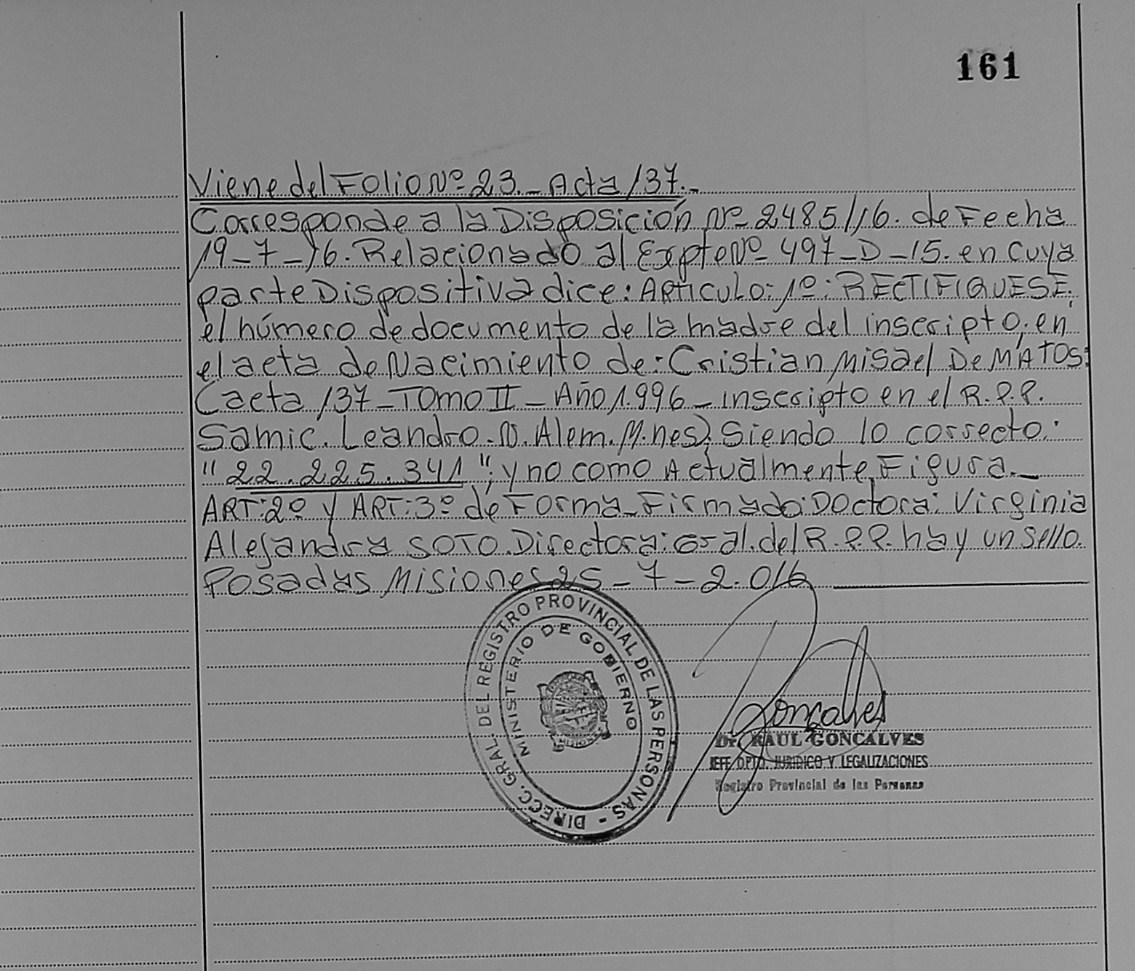 161
Viene del Folio Nº 23.- Acta 137.-
Corresponde a la Disposición Nº 2485/16. de Fecha
19-7-16. Relacionado al Expte Nº 497-D-15. en cuya
parte Dispositiva dice: Articulo: 1º: RECTIFIQUESE.
el número de documento de la madre del inscripto, en
el acta de Nacimiento de: Cristian Misael De MATOS:
(acta 137-Tomo II - Año 1.996 - inscripto en el R.P.P.
Samic. Leandro. N. Alem. M.nes); Siendo lo correcto:
"22.225.341"; y no como Actualmente, Figura.-
ART: 2º y ART: 3º de Forma - Firmado: Doctora: Virginia
Alejandra SOTO. Directora: Gral. del R.P.P. hay un sello.
Posadas Misiones 25-7-2.016
DIRECC. GRAL. DEL REGISTRO PROVINCIAL DE LAS PERSONAS -
MINISTERIO DE GOBIERNO
Goncalves
Dr. RAUL GONCALVES
JEFE DPTO. JURIDICO Y LEGALIZACIONES
Registro Provincial de las Personas